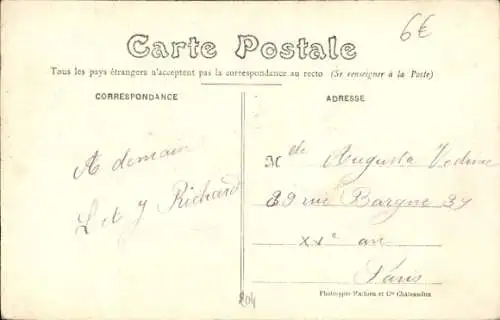 6€
Carte Postale
Tous les pays étrangers n'acceptent pas la correspondance au recto (Se renseigner à la Poste)
CORRESPONDANCE
ADRESSE
A demain
L et J Richard
Mde Augusta
39 rue Bargue 39
XVe arr
Paris
204
Phototypie et Cie Châteaudun